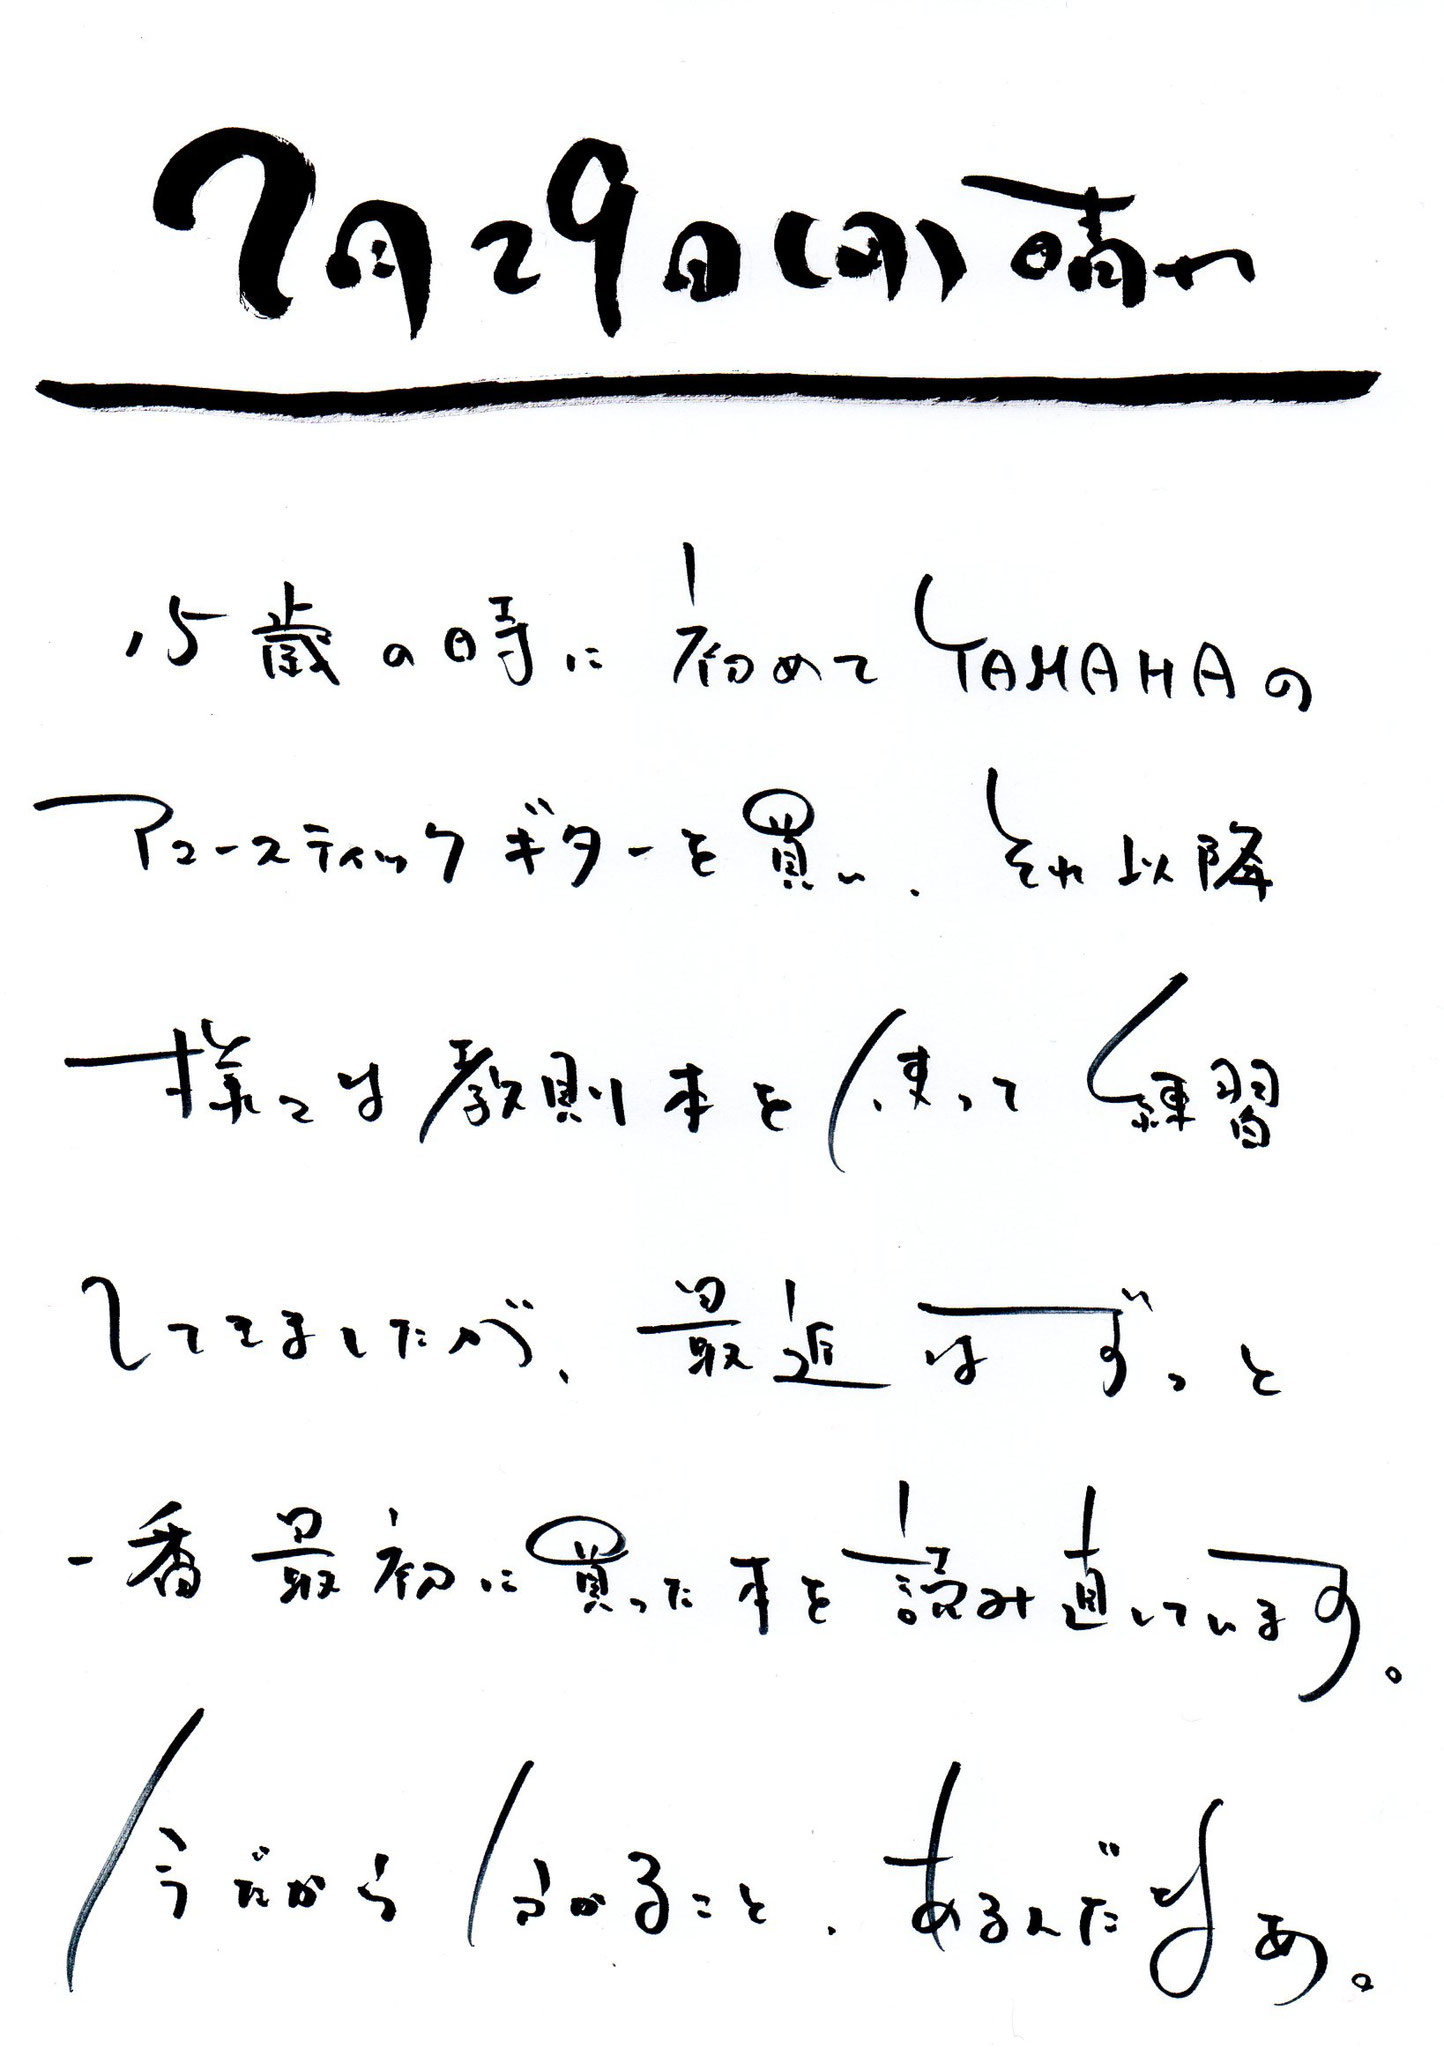 7月29日(月)晴れ
15歳の時に初めてYAMAHAの
アコースティックギターを買い、それ以降
様々な教則本を使って練習
してきましたが、最近はずっと
一番最初に買った本を読み直しています。
今だから分かること、あるんだなぁ。